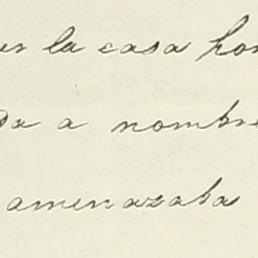 la casa
a nombre
amenazaba